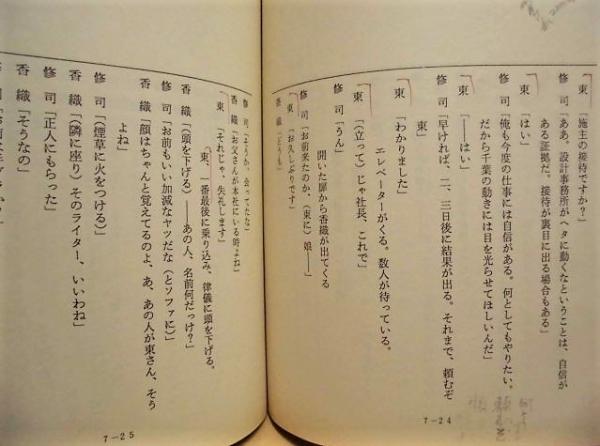 東「施主の接待ですか?」
修 司「ああ。設計事務所がヘタに動くなということは、自信が
ある証拠だ。接待が裏目に出る場合もある」
東「はい」
修 司「俺も今度の仕事には自信がある。何としてもやりたい。
だから千葉の動きには目を光らせてほしいんだ」
東「――はい」
修 司「早ければ、二、三日後に結果が出る。それまで、頼むぞ
東」
東「わかりました」
エレベーターがくる。数人が待っている。
東「(立って)じゃ社長、これで」
修 司「うん」
開いた扉から香織が出てくる
修 司「お前来たのか、(東に)娘――」
東「お久しぶりです」
香 織「どうも」
7-24
修 司「そうか、会ってたな」
香 織「お父さんが本社にいる時よね」
東「それじゃ、失礼します」
東、一番最後に乗り込み、律儀に頭を下げる。
香 織「(頭を下げる)――あの人、名前何だっけ?」
修 司「お前もいい加減なヤツだな(とソファに)」
香 織「顔はちゃんと覚えてるのよ、あ、あの人が東さん、そう
よね」
修 司「(煙草に火をつける)」
香 織「(隣に座り)そのライター、いいわね」
修 司「正人にもらった」
香 織「そうなの」
7-25